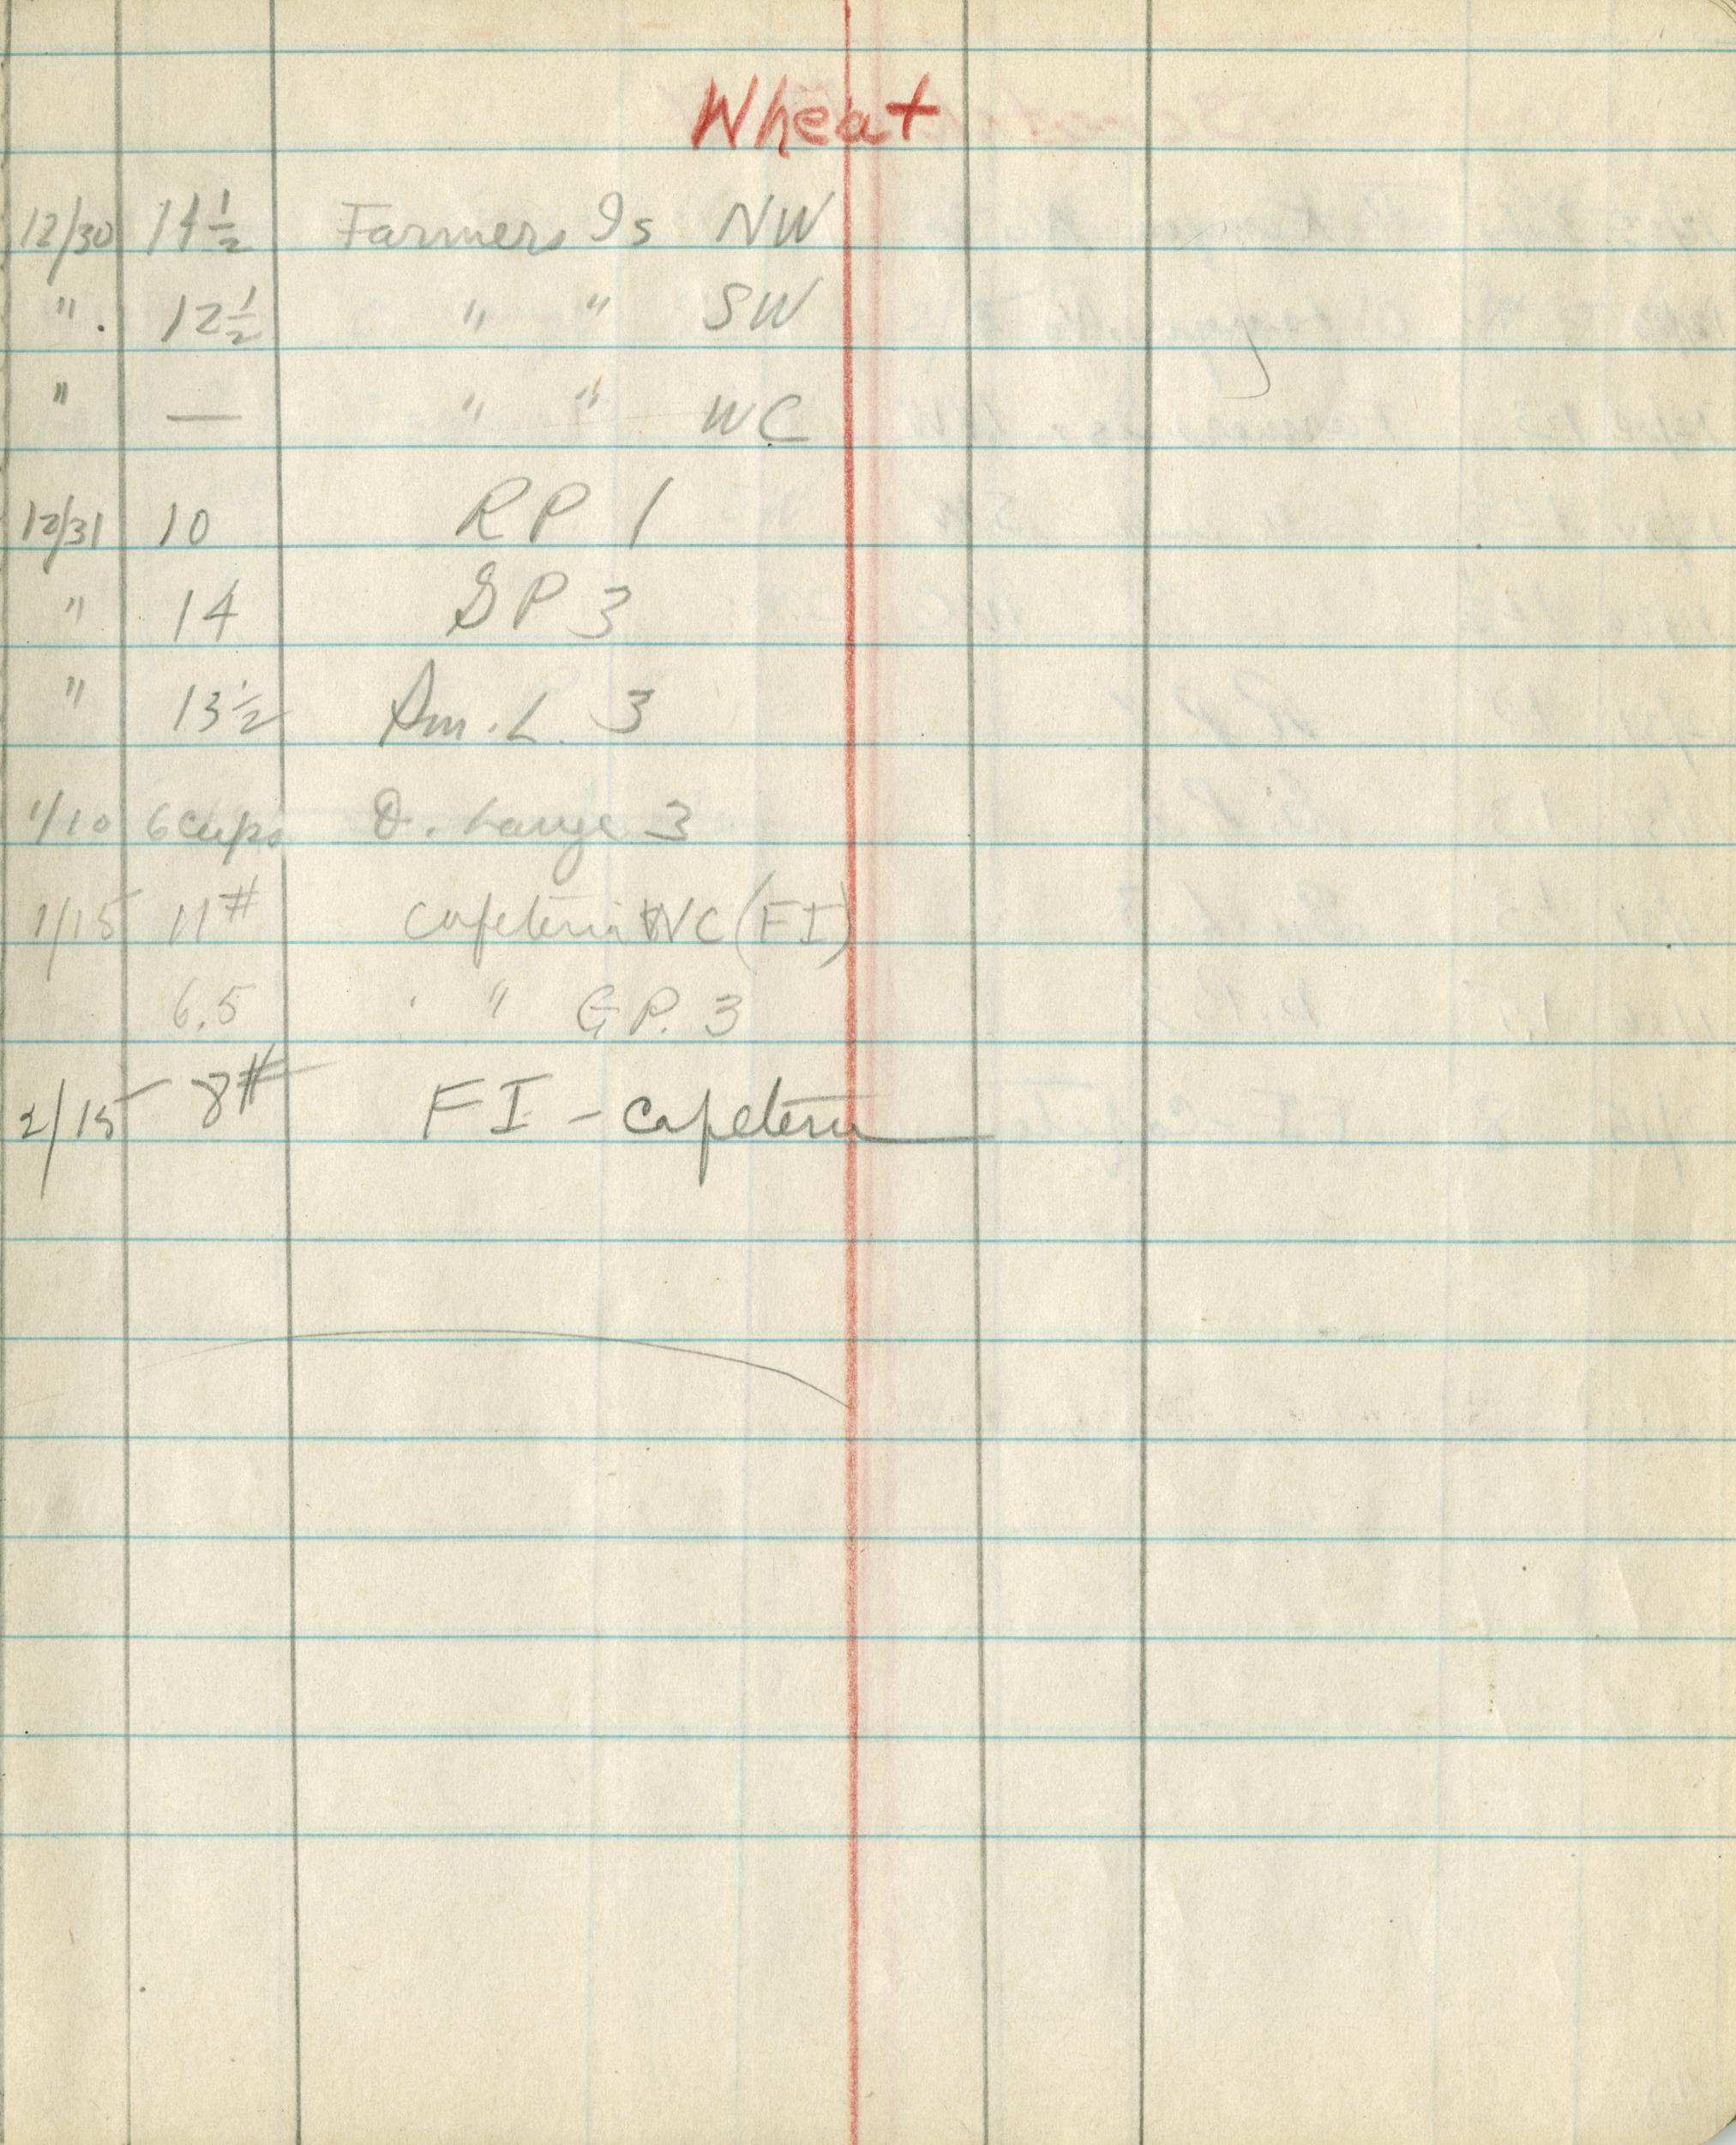 Wheat
12/30 14 1/2 Farmers Is NW
" . 12 1/2 " " SW
" — " " WC
12/31 10 RP 1
" 14 GP 3
" 13 1/2 Am. L. 3
1/10 6 cups D. Lange 3
1/15 11# Cafeteria WC (FI)
6.5 " G P. 3
2/15 8# FI - Cafeteria